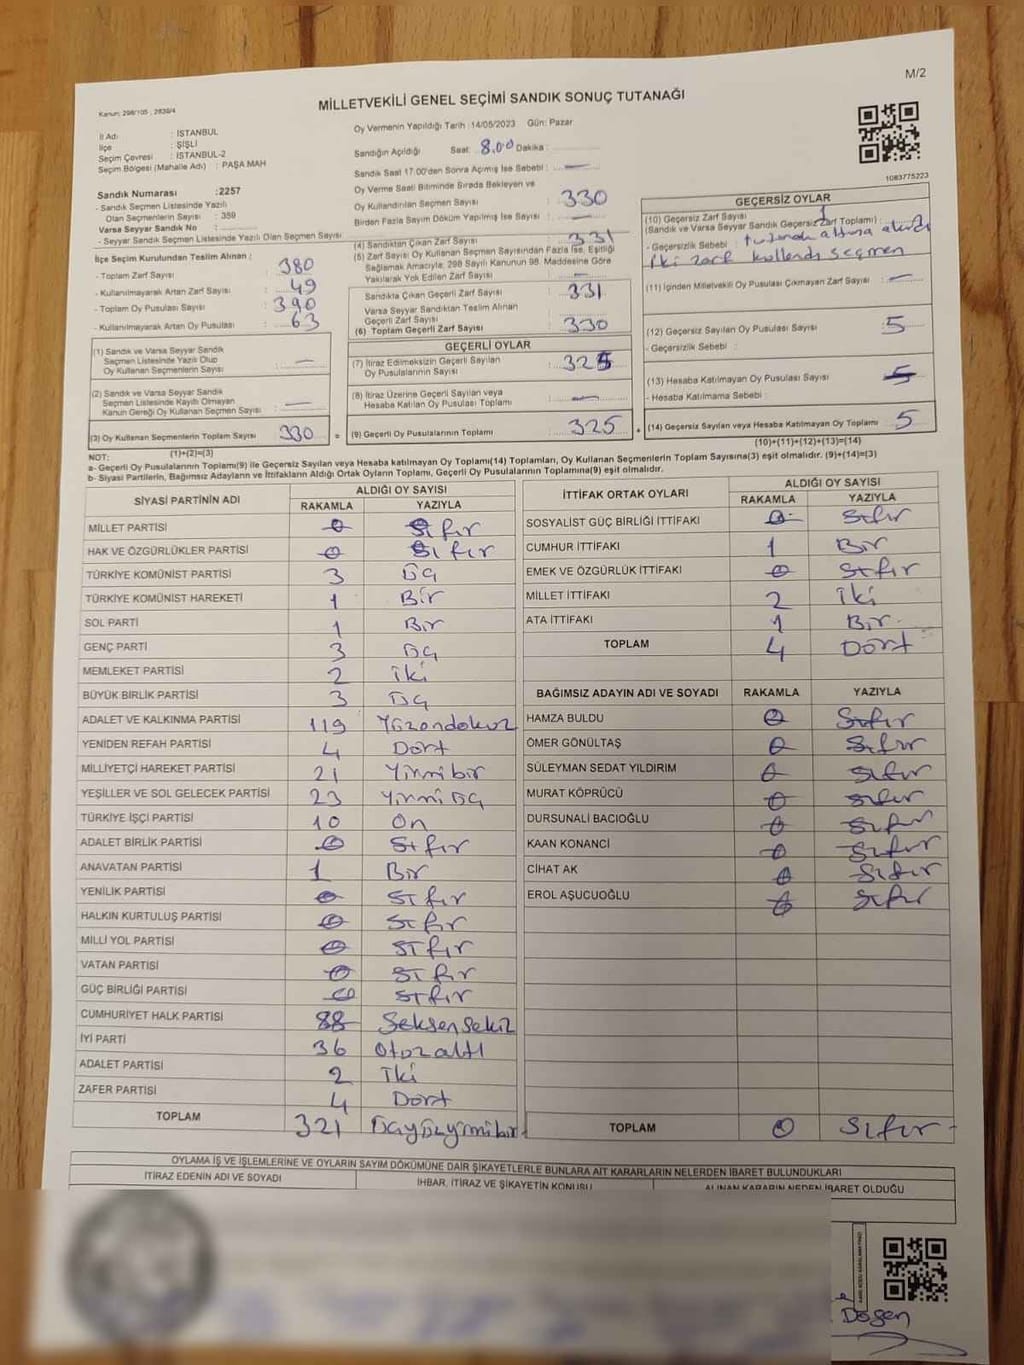 M/2
Kanun: 298/105 , 2839/4
MİLLETVEKİLİ GENEL SEÇİMİ SANDIK SONUÇ TUTANAĞI
İl Adı : İSTANBUL
İlçe : ŞİŞLİ
Seçim Çevresi : İSTANBUL-2
Seçim Bölgesi (Mahalle Adı) : PAŞA MAH
Sandık Numarası : 2257
- Sandık Seçmen Listesinde Yazılı
Olan Seçmenlerin Sayısı : 359
Varsa Seyyar Sandık No :
- Seyyar Sandık Seçmen Listesinde Yazılı Olan Seçmen Sayısı
İlçe Seçim Kurulundan Teslim Alınan :
- Toplam Zarf Sayısı : 380
- Kullanılmayarak Artan Zarf Sayısı : 49
- Toplam Oy Pusulası Sayısı : 390
- Kullanılmayarak Artan Oy Pusulası : 63
(1) Sandık ve Varsa Seyyar Sandık
Seçmen Listesinde Yazılı Olup
Oy Kullanan Seçmenlerin Sayısı : —
(2) Sandık ve Varsa Seyyar Sandık
Seçmen Listesinde Kayıtlı Olmayan
Kanun Gereği Oy Kullanan Seçmen Sayısı : —
(3) Oy Kullanan Seçmenlerin Toplam Sayısı 330
(1)+(2)=(3)
Oy Vermenin Yapıldığı Tarih :14/05/2023 Gün: Pazar
Sandığın Açıldığı Saat: 8.00 Dakika :
Sandık Saat 17.00'den Sonra Açılmış İse Sebebi : —
Oy Verme Saati Bitiminde Sırada Bekleyen ve
Oy Kullandırılan Seçmen Sayısı 330
Birden Fazla Sayım Döküm Yapılmış İse Sayısı : —
(4) Sandıktan Çıkan Zarf Sayısı : 331
(5) Zarf Sayısı Oy Kullanan Seçmen Sayısından Fazla İse, Eşitliği
Sağlamak Amacıyla, 298 Sayılı Kanunun 98. Maddesine Göre
Yakılarak Yok Edilen Zarf Sayısı : —
Sandıkta Çıkan Geçerli Zarf Sayısı : 331
Varsa Seyyar Sandıktan Teslim Alınan
Geçerli Zarf Sayısı
(6) Toplam Geçerli Zarf Sayısı : 330
GEÇERLİ OYLAR
(7) İtiraz Edilmeksizin Geçerli Sayılan
Oy Pusulalarının Sayısı : 325
(8) İtiraz Üzerine Geçerli Sayılan veya
Hesaba Katılan Oy Pusulası Toplamı : —
= (9) Geçerli Oy Pusulalarının Toplamı : 325
1083775223
GEÇERSİZ OYLAR
(10) Geçersiz Zarf Sayısı 1
(Sandık ve Varsa Seyyar Sandık Geçersiz Zarf Toplamı) :
- Geçersizlik Sebebi : tutanak altına alındı
iki zarf kullandı seçmen
(11) İçinden Milletvekili Oy Pusulası Çıkmayan Zarf Sayısı : —
(12) Geçersiz Sayılan Oy Pusulası Sayısı : 5
- Geçersizlik Sebebi :
(13) Hesaba Katılmayan Oy Pusulası Sayısı : 5
- Hesaba Katılmama Sebebi :
+ (14) Geçersiz Sayılan veya Hesaba Katılmayan Oy Toplamı : 5
(10)+(11)+(12)+(13)=(14)
NOT:
a- Geçerli Oy Pusulalarının Toplamı(9) ile Geçersiz Sayılan veya Hesaba katılmayan Oy Toplamı(14) Toplamları, Oy Kullanan Seçmenlerin Toplam Sayısına(3) eşit olmalıdır. (9)+(14)=(3)
b- Siyasi Partilerin, Bağımsız Adayların ve İttifakların Aldığı Ortak Oyların Toplamı, Geçerli Oy Pusulalarının Toplamına(9) eşit olmalıdır.
SİYASİ PARTİNİN ADI ALDIĞI OY SAYISI
RAKAMLA YAZIYLA
MİLLET PARTİSİ 0 Sıfır
HAK VE ÖZGÜRLÜKLER PARTİSİ 0 Sıfır
TÜRKİYE KOMÜNİST PARTİSİ 3 Üç
TÜRKİYE KOMÜNİST HAREKETİ 1 Bir
SOL PARTİ 1 Bir
GENÇ PARTİ 3 Üç
MEMLEKET PARTİSİ 2 iki
BÜYÜK BİRLİK PARTİSİ 3 Üç
ADALET VE KALKINMA PARTİSİ 119 Yüzondokuz
YENİDEN REFAH PARTİSİ 4 Dört
MİLLİYETÇİ HAREKET PARTİSİ 21 Yirmibir
YEŞİLLER VE SOL GELECEK PARTİSİ 23 Yirmi Üç
TÜRKİYE İŞÇİ PARTİSİ 10 On
ADALET BİRLİK PARTİSİ 0 Sıfır
ANAVATAN PARTİSİ 1 Bir
YENİLİK PARTİSİ 0 Sıfır
HALKIN KURTULUŞ PARTİSİ 0 Sıfır
MİLLİ YOL PARTİSİ 0 Sıfır
VATAN PARTİSİ 0 Sıfır
GÜÇ BİRLİĞİ PARTİSİ 0 Sıfır
CUMHURİYET HALK PARTİSİ 88 Seksensekiz
İYİ PARTİ 36 Otuzaltı
ADALET PARTİSİ 2 İki
ZAFER PARTİSİ 4 Dört
TOPLAM 321 Üçyüzyirmibir
İTTİFAK ORTAK OYLARI ALDIĞI OY SAYISI
RAKAMLA YAZIYLA
SOSYALİST GÜÇ BİRLİĞİ İTTİFAKI 0 Sıfır
CUMHUR İTTİFAKI 1 Bir
EMEK VE ÖZGÜRLÜK İTTİFAKI 0 Sıfır
MİLLET İTTİFAKI 2 İki
ATA İTTİFAKI 1 Bir
TOPLAM 4 Dört
BAĞIMSIZ ADAYIN ADI VE SOYADI RAKAMLA YAZIYLA
HAMZA BULDU 0 Sıfır
ÖMER GÖNÜLTAŞ 0 Sıfır
SÜLEYMAN SEDAT YILDIRIM 0 Sıfır
MURAT KÖPRÜCÜ 0 Sıfır
DURSUNALİ BACIOĞLU 0 Sıfır
KAAN KONANCİ 0 Sıfır
CİHAT AK 0 Sıfır
EROL AŞUCUOĞLU 0 Sıfır
TOPLAM 0 Sıfır
OYLAMA İŞ VE İŞLEMLERİNE VE OYLARIN SAYIM DÖKÜMÜNE DAİR ŞİKAYETLERLE BUNLARA AİT KARARLARIN NELERDEN İBARET BULUNDUKLARI
İTİRAZ EDENİN ADI VE SOYADI İHBAR, İTİRAZ VE ŞİKAYETİN KONUSU ALINAN KARARIN NEDEN İBARET OLDUĞU
Döşen